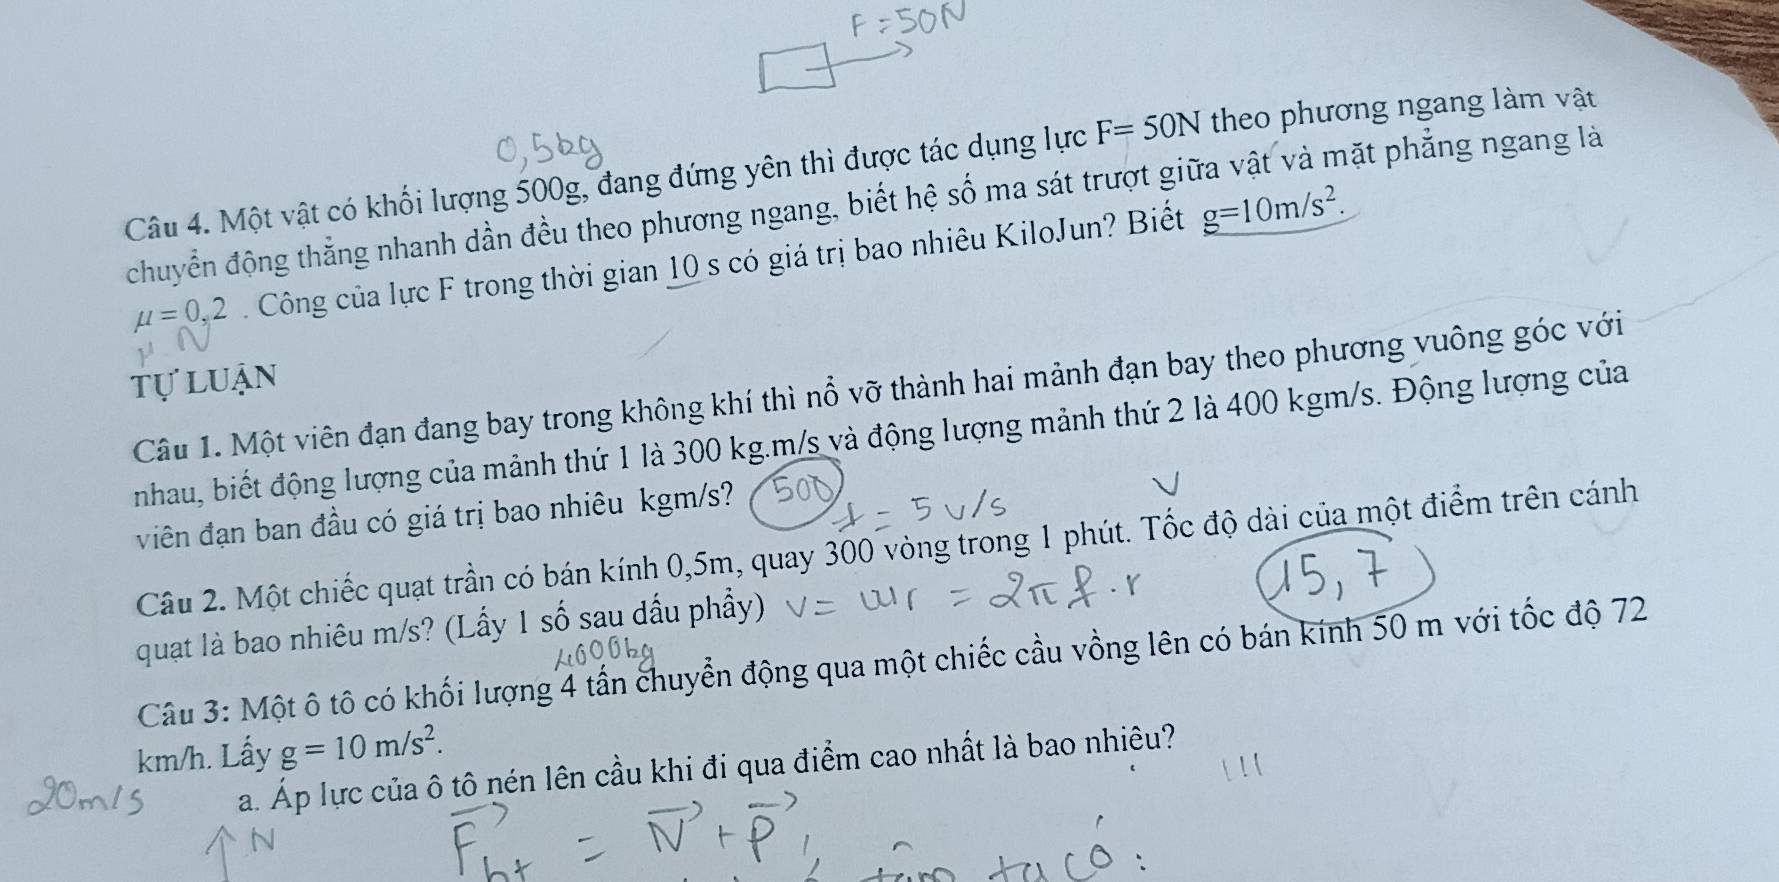 F = 50N
0,5kg
Câu 4. Một vật có khối lượng 500g, đang đứng yên thì được tác dụng lực F= 50N theo phương ngang làm vật
chuyển động thẳng nhanh dần đều theo phương ngang, biết hệ số ma sát trượt giữa vật và mặt phẳng ngang là
μ = 0,2 . Công của lực F trong thời gian 10 s có giá trị bao nhiêu KiloJun? Biết g=10m/s².
μ N
TỰ LUẬN
Câu 1. Một viên đạn đang bay trong không khí thì nổ vỡ thành hai mảnh đạn bay theo phương vuông góc với
nhau, biết động lượng của mảnh thứ 1 là 300 kg.m/s và động lượng mảnh thứ 2 là 400 kgm/s. Động lượng của
viên đạn ban đầu có giá trị bao nhiêu kgm/s? 500
f = 5 v/s v
Câu 2. Một chiếc quạt trần có bán kính 0,5m, quay 300 vòng trong 1 phút. Tốc độ dài của một điểm trên cánh
quạt là bao nhiêu m/s? (Lấy 1 số sau dấu phẩy) v = ωr = 2π f . r 15,7
4000kg
Câu 3: Một ô tô có khối lượng 4 tấn chuyển động qua một chiếc cầu vồng lên có bán kính 50 m với tốc độ 72
km/h. Lấy g = 10 m/s².
20m/s
a. Áp lực của ô tô nén lên cầu khi đi qua điểm cao nhất là bao nhiêu? !!!
↑ N
F⃗ht = N⃗ + P⃗
ta có :